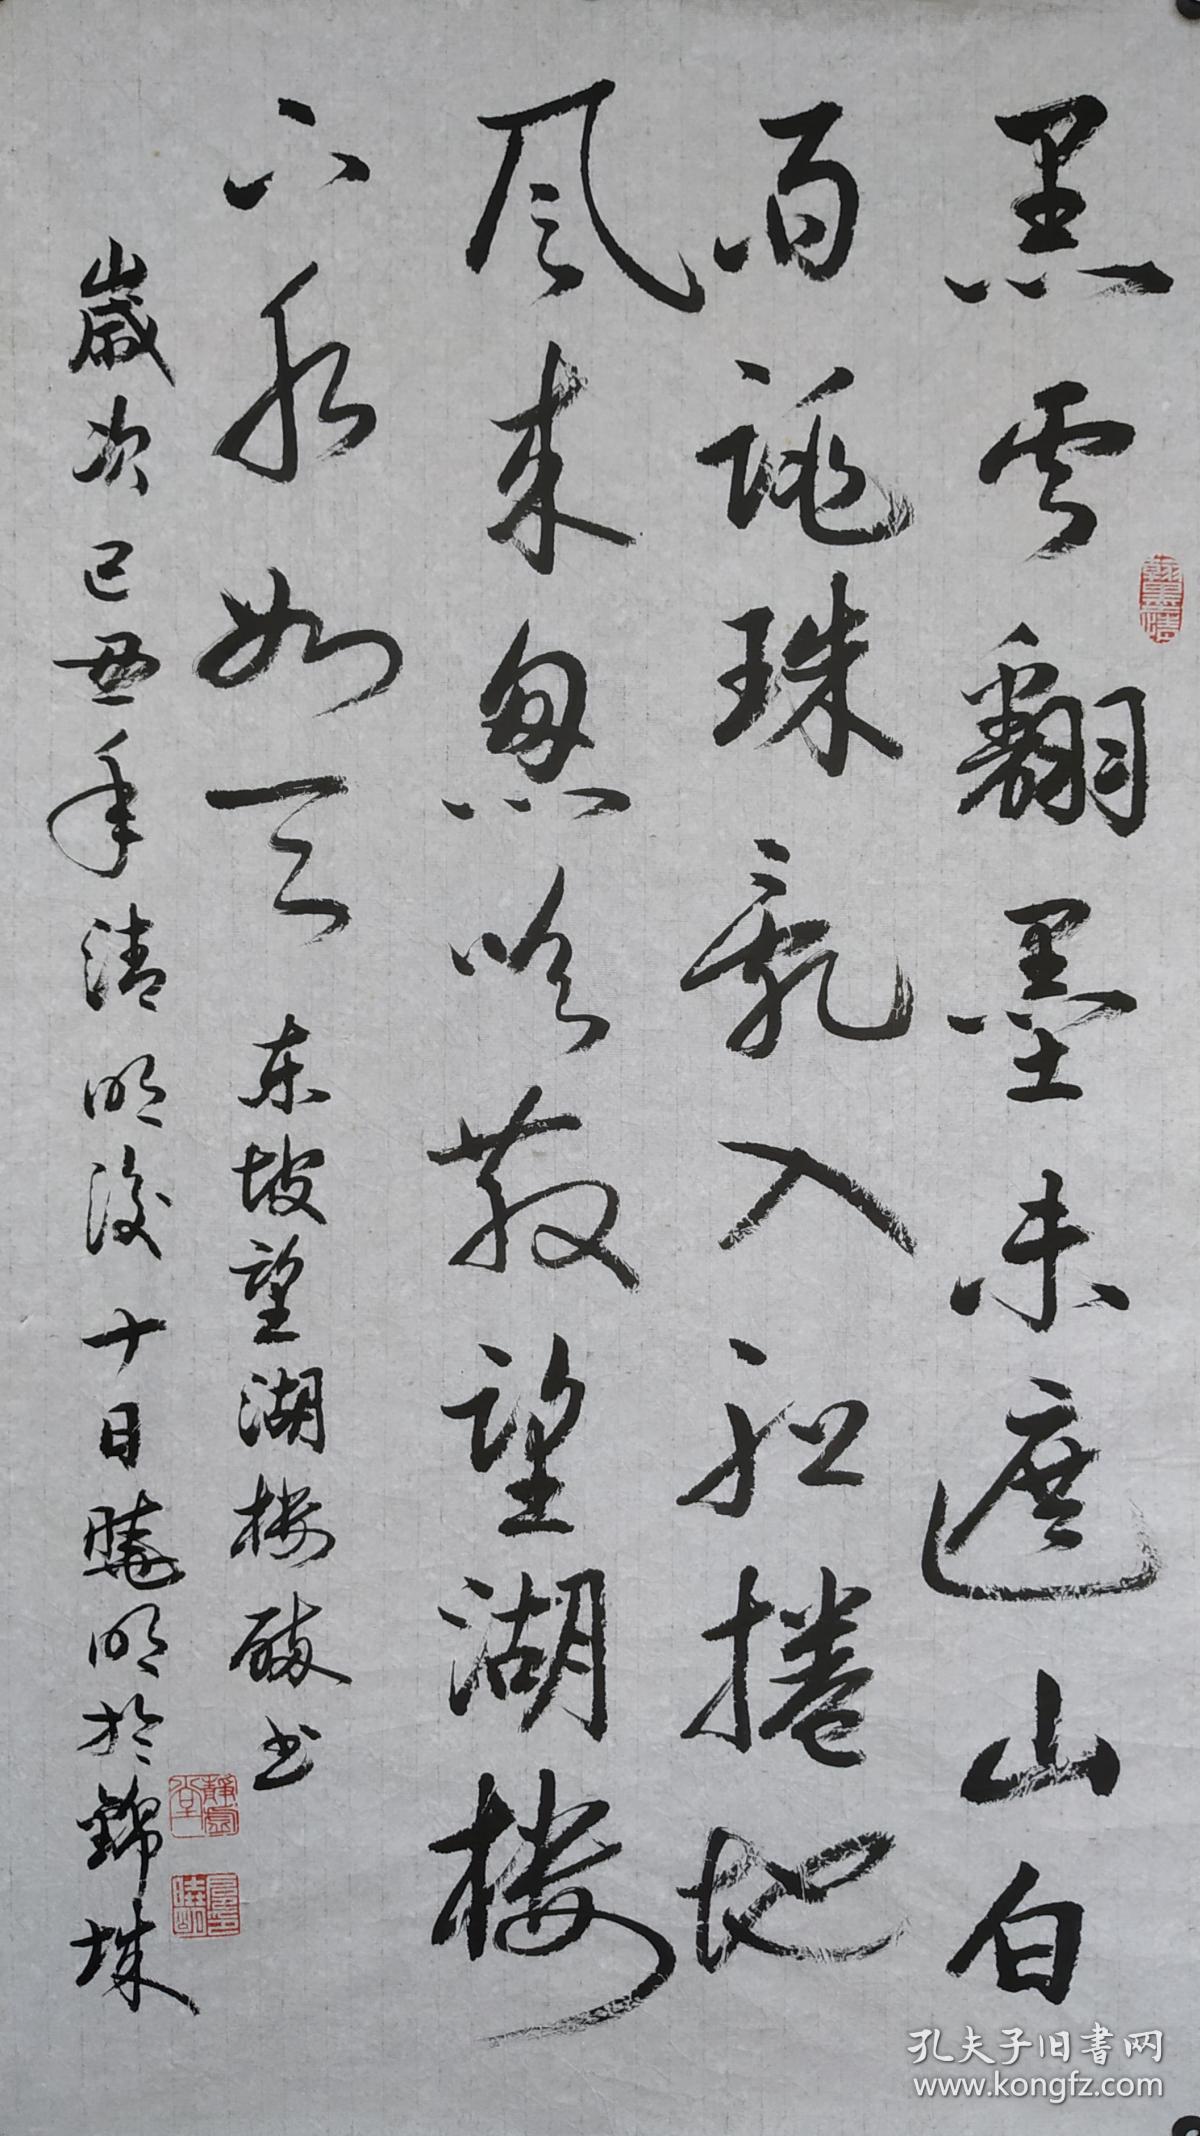 黑雲翻墨未遮山白
雨跳珠乱入船捲地
風来忽吹散望湖楼
下水如天 东坡望湖楼醉书
歲次己丑年清明後十日曉明於錦城
孔夫子旧书网
www.kongfz.com